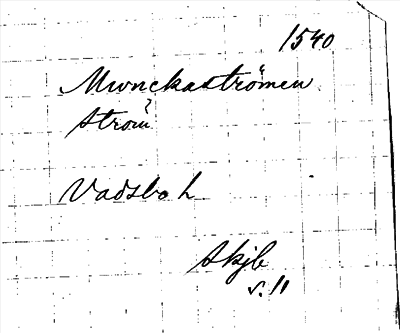 1540
Mwnckaströmen
ström
Vadsbo h
skjb
s. 11